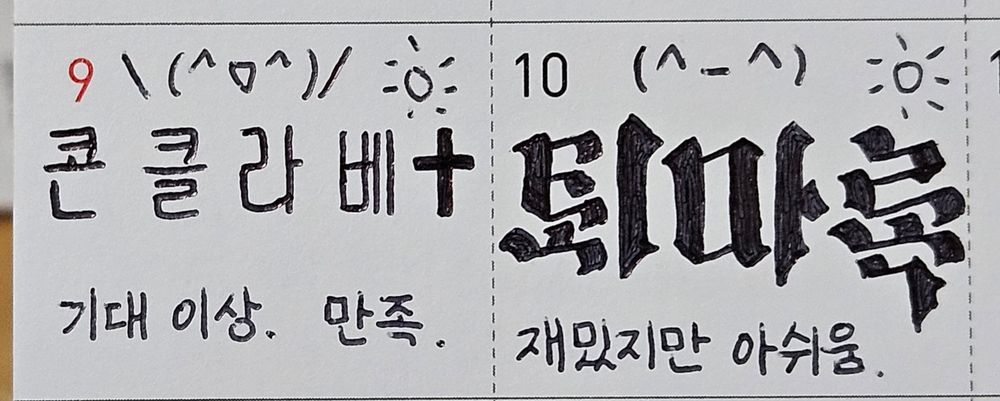 9 \(^ㅁ^)/
콘클라베✝
기대 이상. 만족.
10 (^-^)
퇴마록
재밌지만 아쉬움.